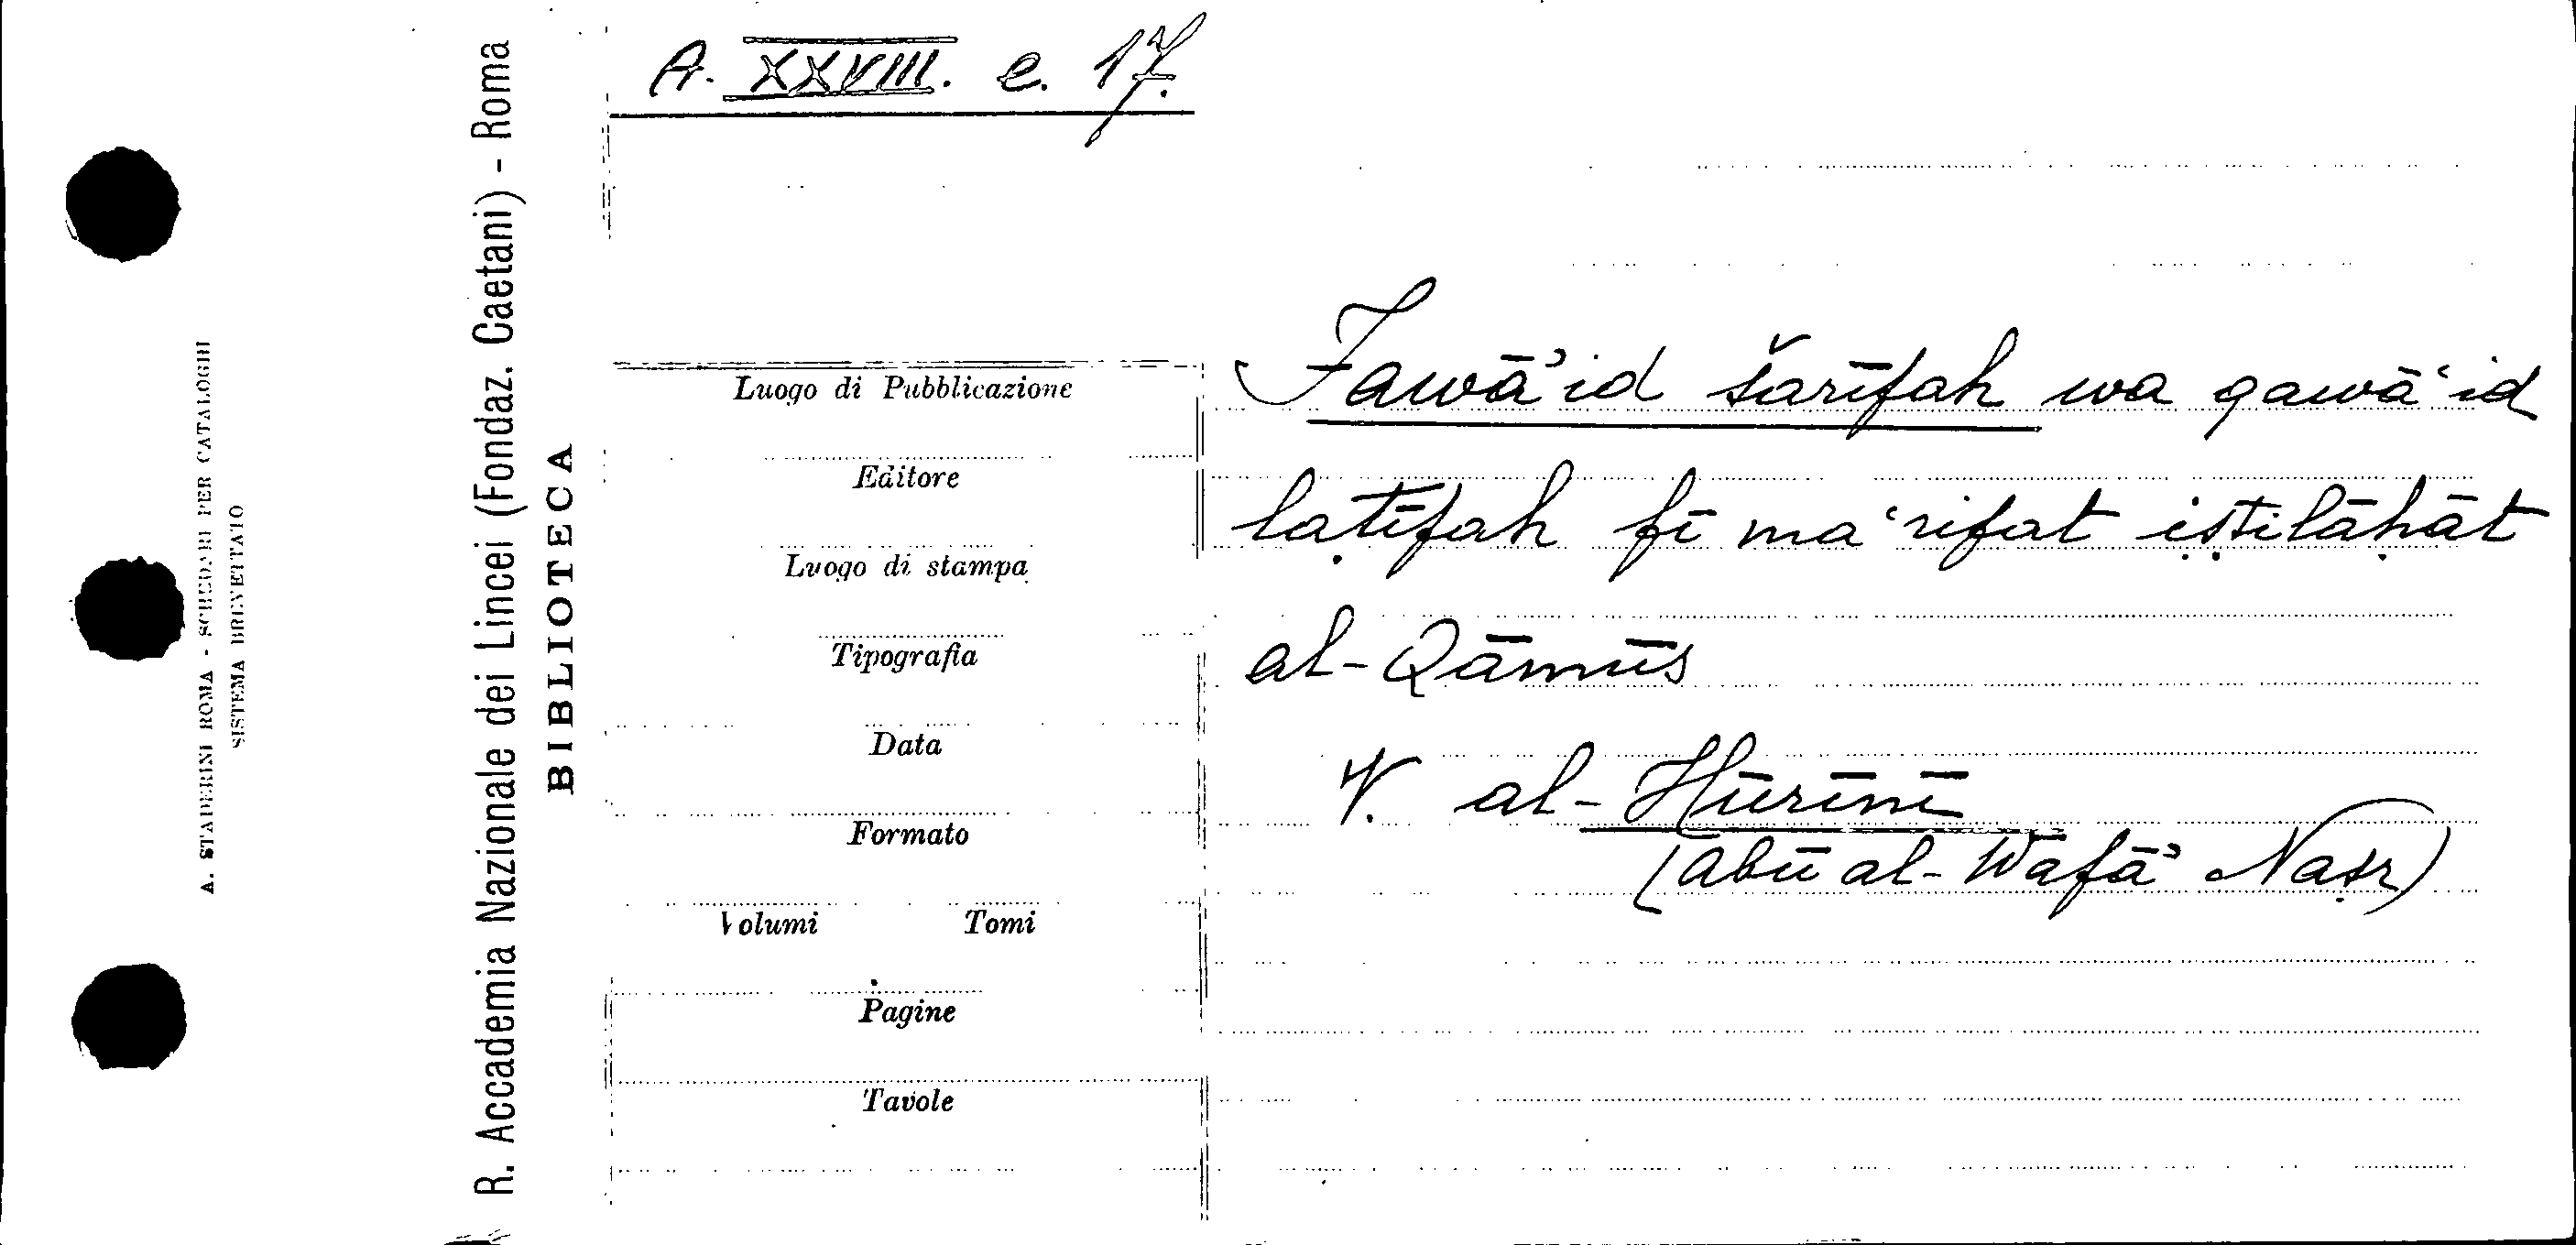 A. XXVIII. e. 17.
Fawā'id šarīfah wa qawā'id
laṭīfah fī ma'rifat iṣṭilāḥāt
al-Qāmūs
V. al-Hūrīnī
(Abū al-Wafā' Naṣr)
Luogo di Pubblicazione
Editore
Luogo di stampa
Tipografia
Data
Formato
Volumi Tomi
Pagine
Tavole
R. Accademia Nazionale dei Lincei (Fondaz. Caetani) - Roma
BIBLIOTECA
A. STADERINI ROMA - SCHEDARI PER CATALOGHI
SISTEMA BREVETTATO